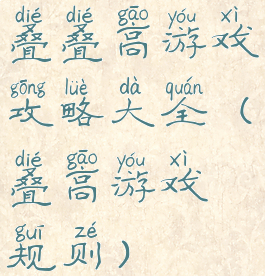 dié dié gāo yóu xì
叠叠高游戏
gōng lüè dà quán
攻略大全（
dié gāo yóu xì
叠高游戏
guī zé
规则）